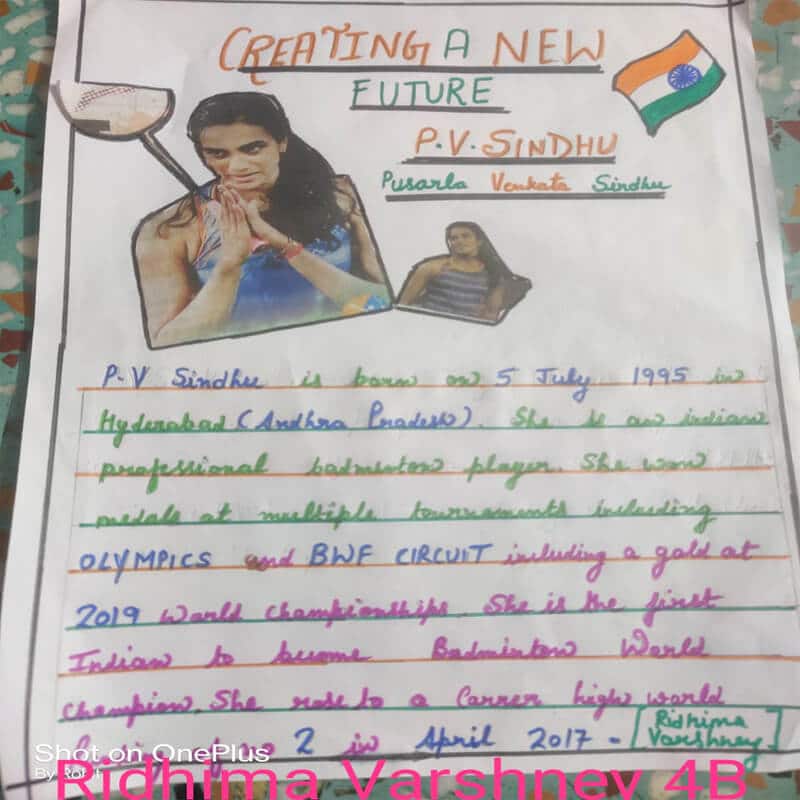 CREATING A NEW
FUTURE
P.V. SINDHU
Pusarla Venkata Sindhu
P.V Sindhu is born on 5 July 1995 in
Hyderabad (Andhra Pradesh). She is an indian
professional badminton player. She won
medals at multiple tournaments including
OLYMPICS and BWF CIRCUIT including a gold at
2019 world championships. She is the first
Indian to become Badminton World
champion. She rose to a Carrer high world
2 in April 2017 -
Ridhima
Varshney
Shot on OnePlus
By
Ridhima Varshney 4B